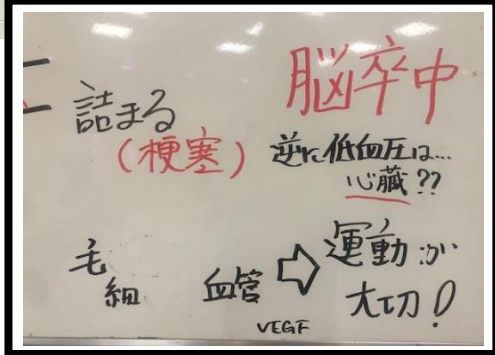 脳卒中
詰まる
(梗塞)
逆に低血圧は…
心臓??
毛細血管⇨運動が
大切!
VEGF